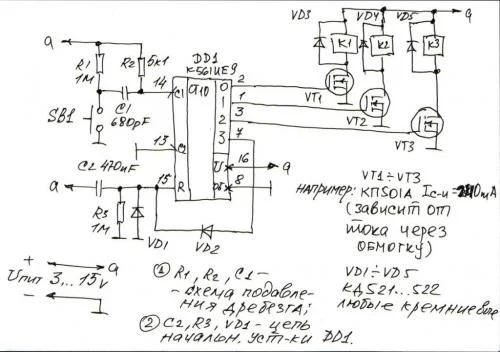 a
R1
1M
R2
5к1
DD1
К561ИЕ9
14
C1
CT10
SB1
C1
680pF
13
C2
0
1
2
3
2
1
3
7
VT1
VT2
VT3
VD3
K1
VD4
K2
VD5
K3
a
U
16
a
0V
8
a
C2 470nF
15
R
R3
1M
VD1
VD2
+ a
Uпит 3...15v
-
① R1, R2, C1 -
- схема подавле-
ния дребезга;
② C2, R3, VD1 - цепь
начальн. уст-ки DD1.
VT1÷VT3
например: КП501А Iс-и=
(зависит от
тока через
обмотку)
VD1÷VD5
КД521...522
любые кремниевые